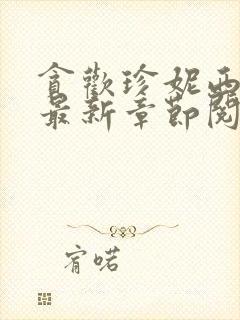 貪歡珍妮西
最新章節閱
宥喏